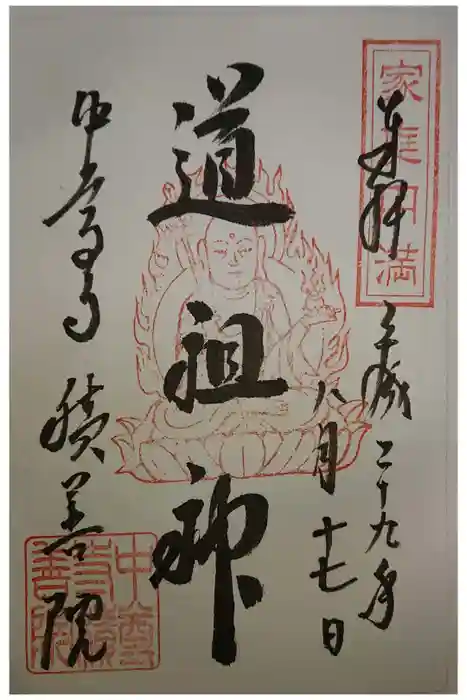 家庭円満
奉拝
平成二十九年
八月十七日
道祖神
中尊寺 積善院
中尊寺積善院